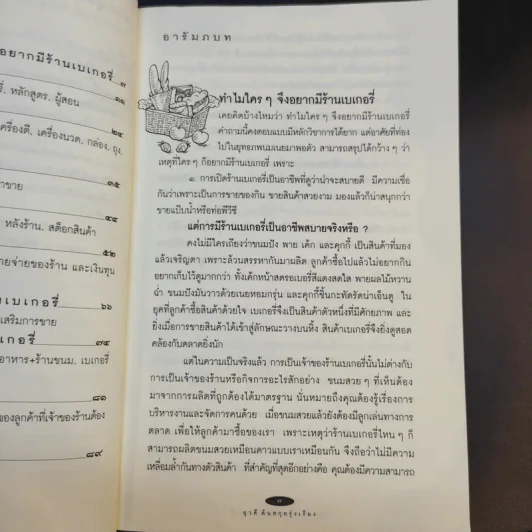 อยากมีร้านเบเกอรี่ ๓
รี่, หลักสูตร, ผู้สอน
๑๑
๒๔
ครื่องตี, เครื่องนวด, กล่อง, ถุง,
๓๕
าขาย
๔๔
หลังร้าน, สต็อกสินค้า
๕๒
ายจ่ายของร้าน และเงินทุน
บเกอรี่ ๖๖
เสริมการขาย
กอรี่ ๗๔
อาหาร+ร้านขนม, เบเกอรี่
๘๑
ของลูกค้าที่เจ้าของร้านต้อง
๘๙
อารัมภบท
ทำไมใคร ๆ จึงอยากมีร้านเบเกอรี่
เคยคิดบ้างไหมว่า ทำไมใคร ๆ จึงอยากมีร้านเบเกอรี่
คำถามนี้คงตอบแบบมีหลักวิชาการได้ยาก แต่อาศัยที่ท่อง
ไปในยุทธภพนมเนยมาพอตัว สามารถสรุปได้กว้าง ๆ ว่า
เหตุที่ใคร ๆ ก็อยากมีร้านเบเกอรี่ เพราะ
๑. การเปิดร้านเบเกอรี่เป็นอาชีพที่ดูว่าน่าจะสบายดี มีความเชื่อ
กันว่าเพราะเป็นการขายของกิน ขายสินค้าสวยงาม มองแล้วก็น่าสนุกกว่า
ขายแป๊บน้ำหรือท่อพีวีซี
แต่การมีร้านเบเกอรี่เป็นอาชีพสบายจริงหรือ ?
คงไม่มีใครเถียงว่าขนมปัง พาย เค้ก และคุกกี้ เป็นสินค้าที่มอง
แล้วเจริญตา เพราะล้วนสรรหากันมาผลิต ลูกค้าซื้อไปแล้วไม่อยากกิน
อยากเก็บไว้ดูมากกว่า ทั้งเค้กหน้าสตรอเบอรี่สีแดงสดใส พายผลไม้หวาน
ฉ่ำ ขนมปังมันวาวด้วยเนยหอมกรุ่น และคุกกี้ชิ้นกะทัดรัดน่าเอ็นดู ใน
ยุคที่ลูกค้าซื้อสินค้าด้วยใจ เบเกอรี่จึงเป็นสินค้าตัวหนึ่งที่มีศักยภาพ และ
ยิ่งเมื่อการขายสินค้าได้เข้าสู่ลักษณะวางบนหิ้ง สินค้าเบเกอรี่จึงยิ่งดูสอด
คล้องกับตลาดยิ่งนัก
แต่ในความเป็นจริงแล้ว การเป็นเจ้าของร้านเบเกอรี่นั้นไม่ต่างกับ
การเป็นเจ้าของร้านหรือกิจการอะไรสักอย่าง ขนมสวย ๆ ที่เห็นต้อง
มาจากการผลิตที่ถูกต้องได้มาตรฐาน นั่นหมายถึงคุณต้องรู้เรื่องการ
บริหารงานและจัดการคนด้วย เมื่อขนมสวยแล้วยังต้องมีลูกเล่นทางการ
ตลาด เพื่อให้ลูกค้ามาซื้อของเรา เพราะเหตุว่าร้านเบเกอรี่ไหน ๆ ก็
สามารถผลิตขนมสวยเหมือนดาวแบบเราเหมือนกัน จึงถือว่าไม่มีความ
เหลื่อมล้ำกันทางตัวสินค้า ที่สำคัญที่สุดอีกอย่างคือ คุณต้องมีความสามารถ
๓
สุวดี ตันสกุลรุ่งเรือง